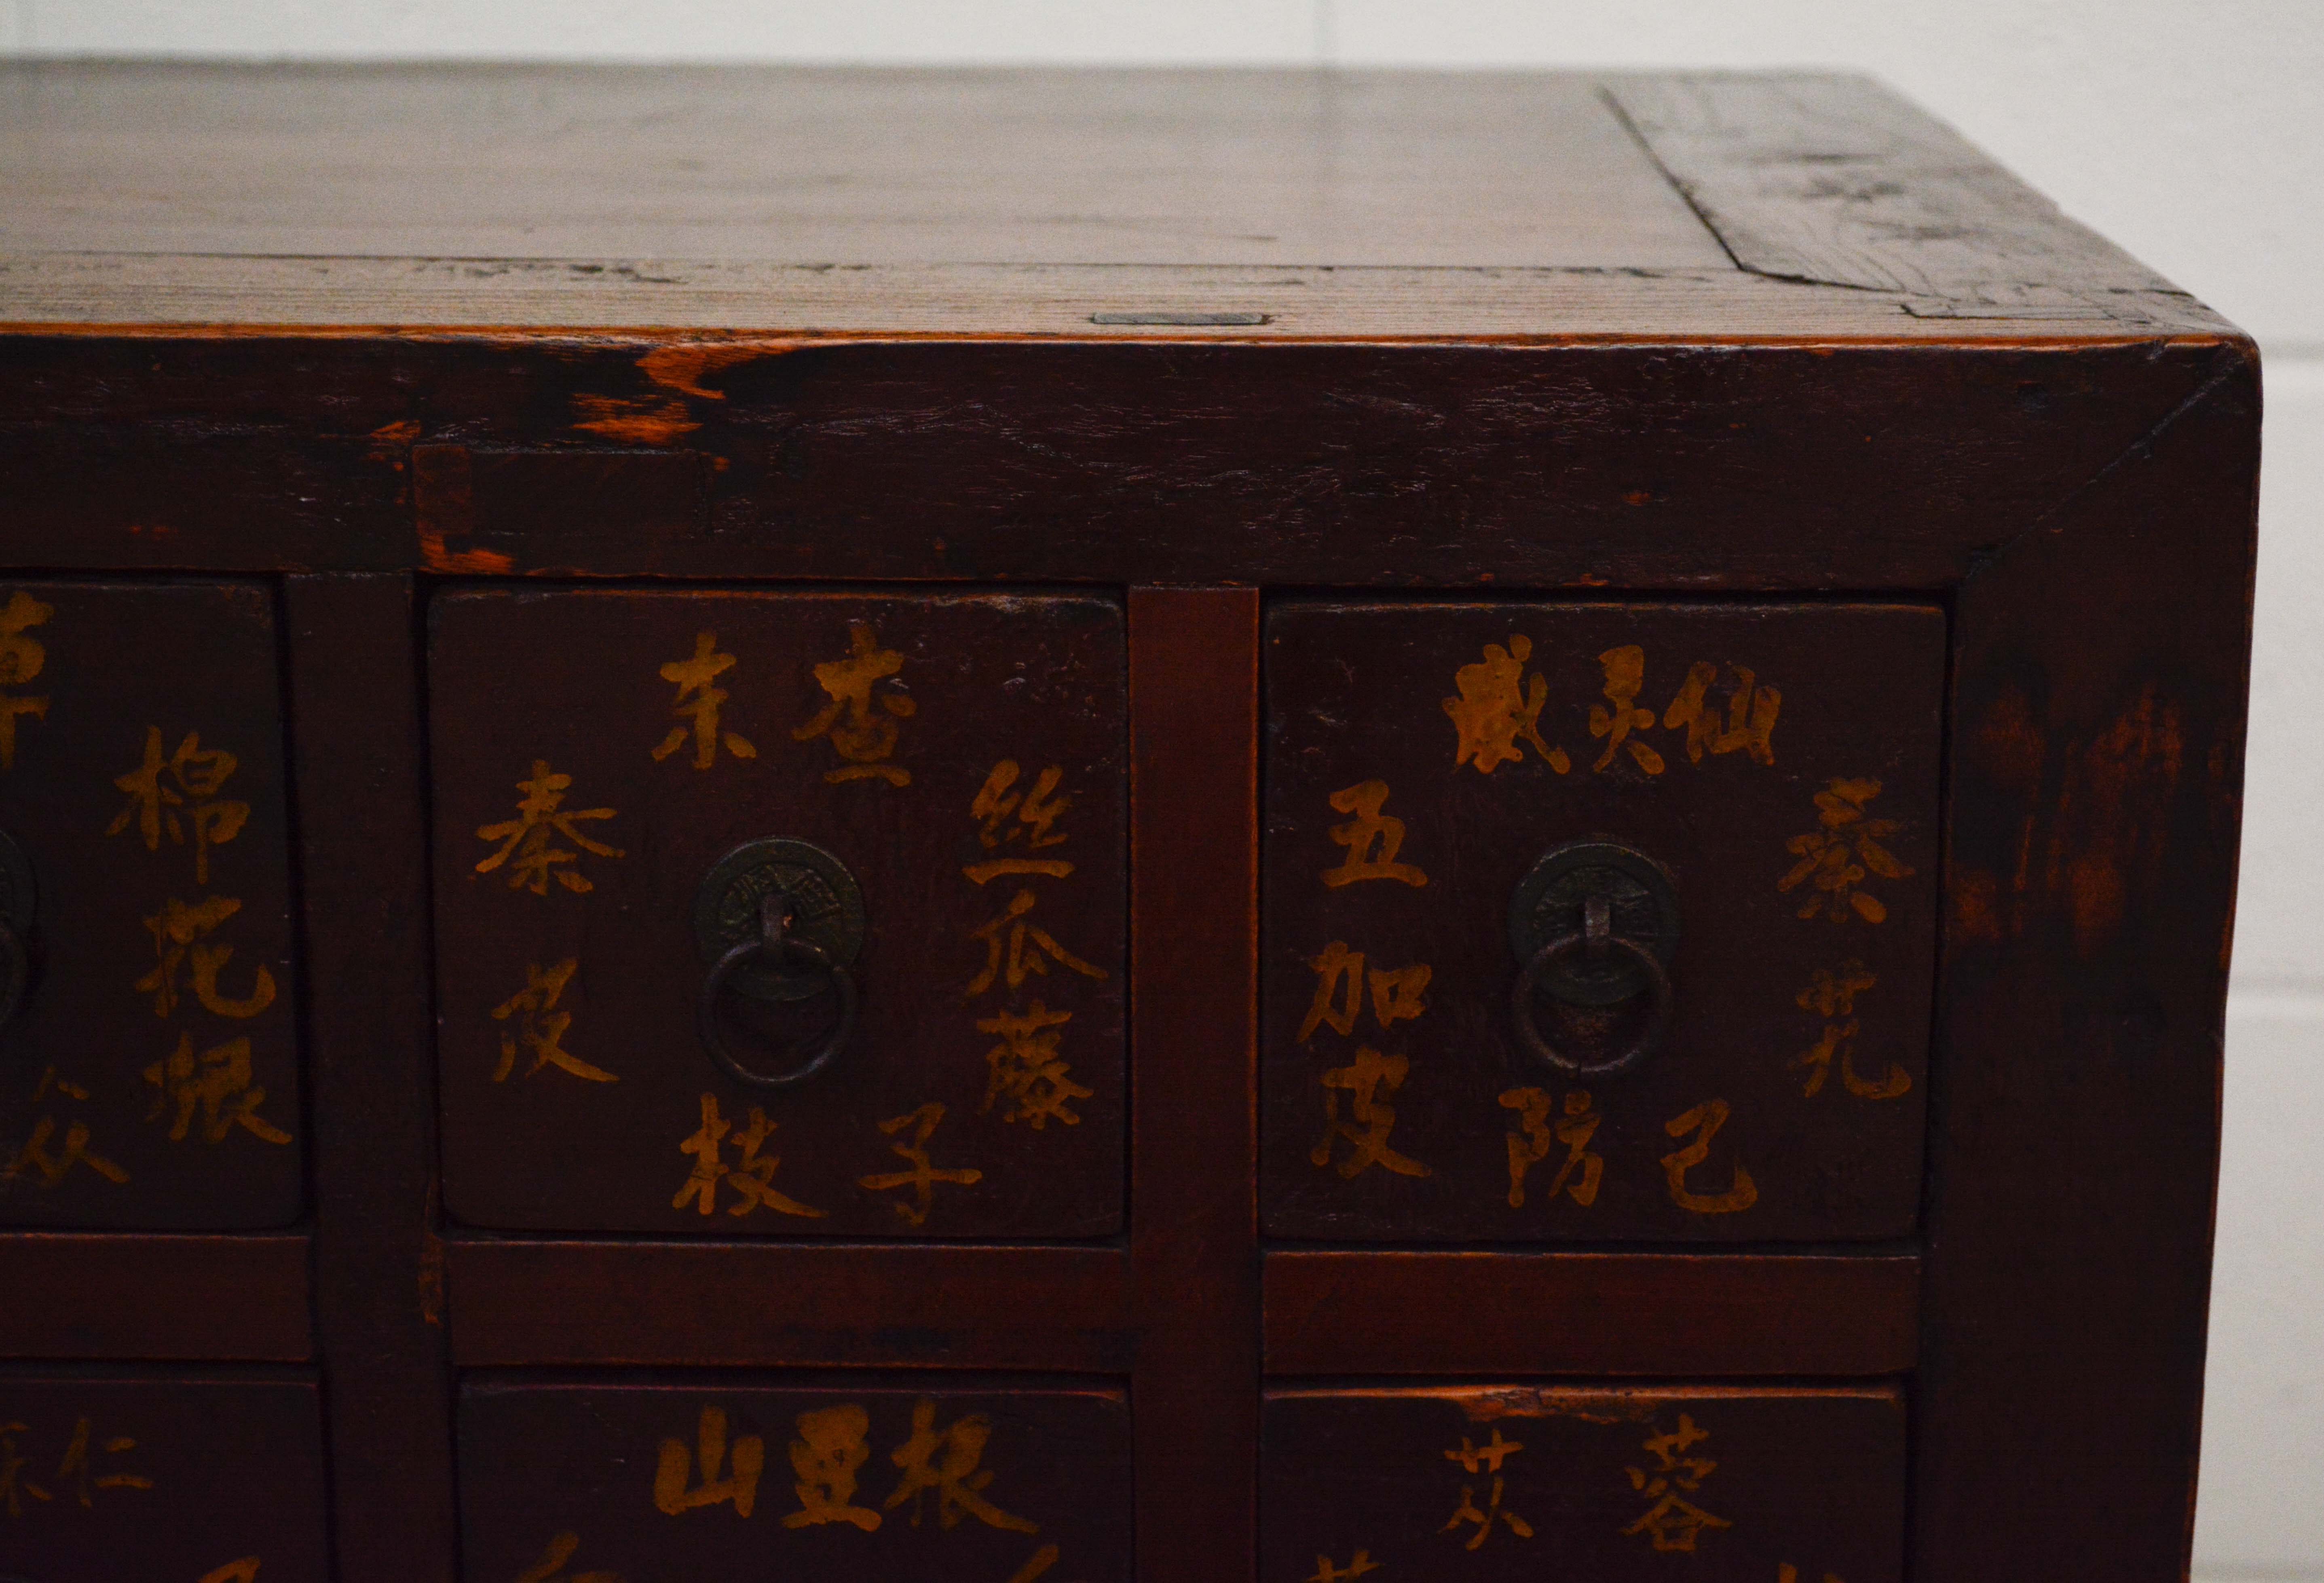 草
棉花根
众
东查
秦皮
丝瓜藤
枝子
威灵仙
五加皮
秦艽
防己
仁
山豆根
苁蓉